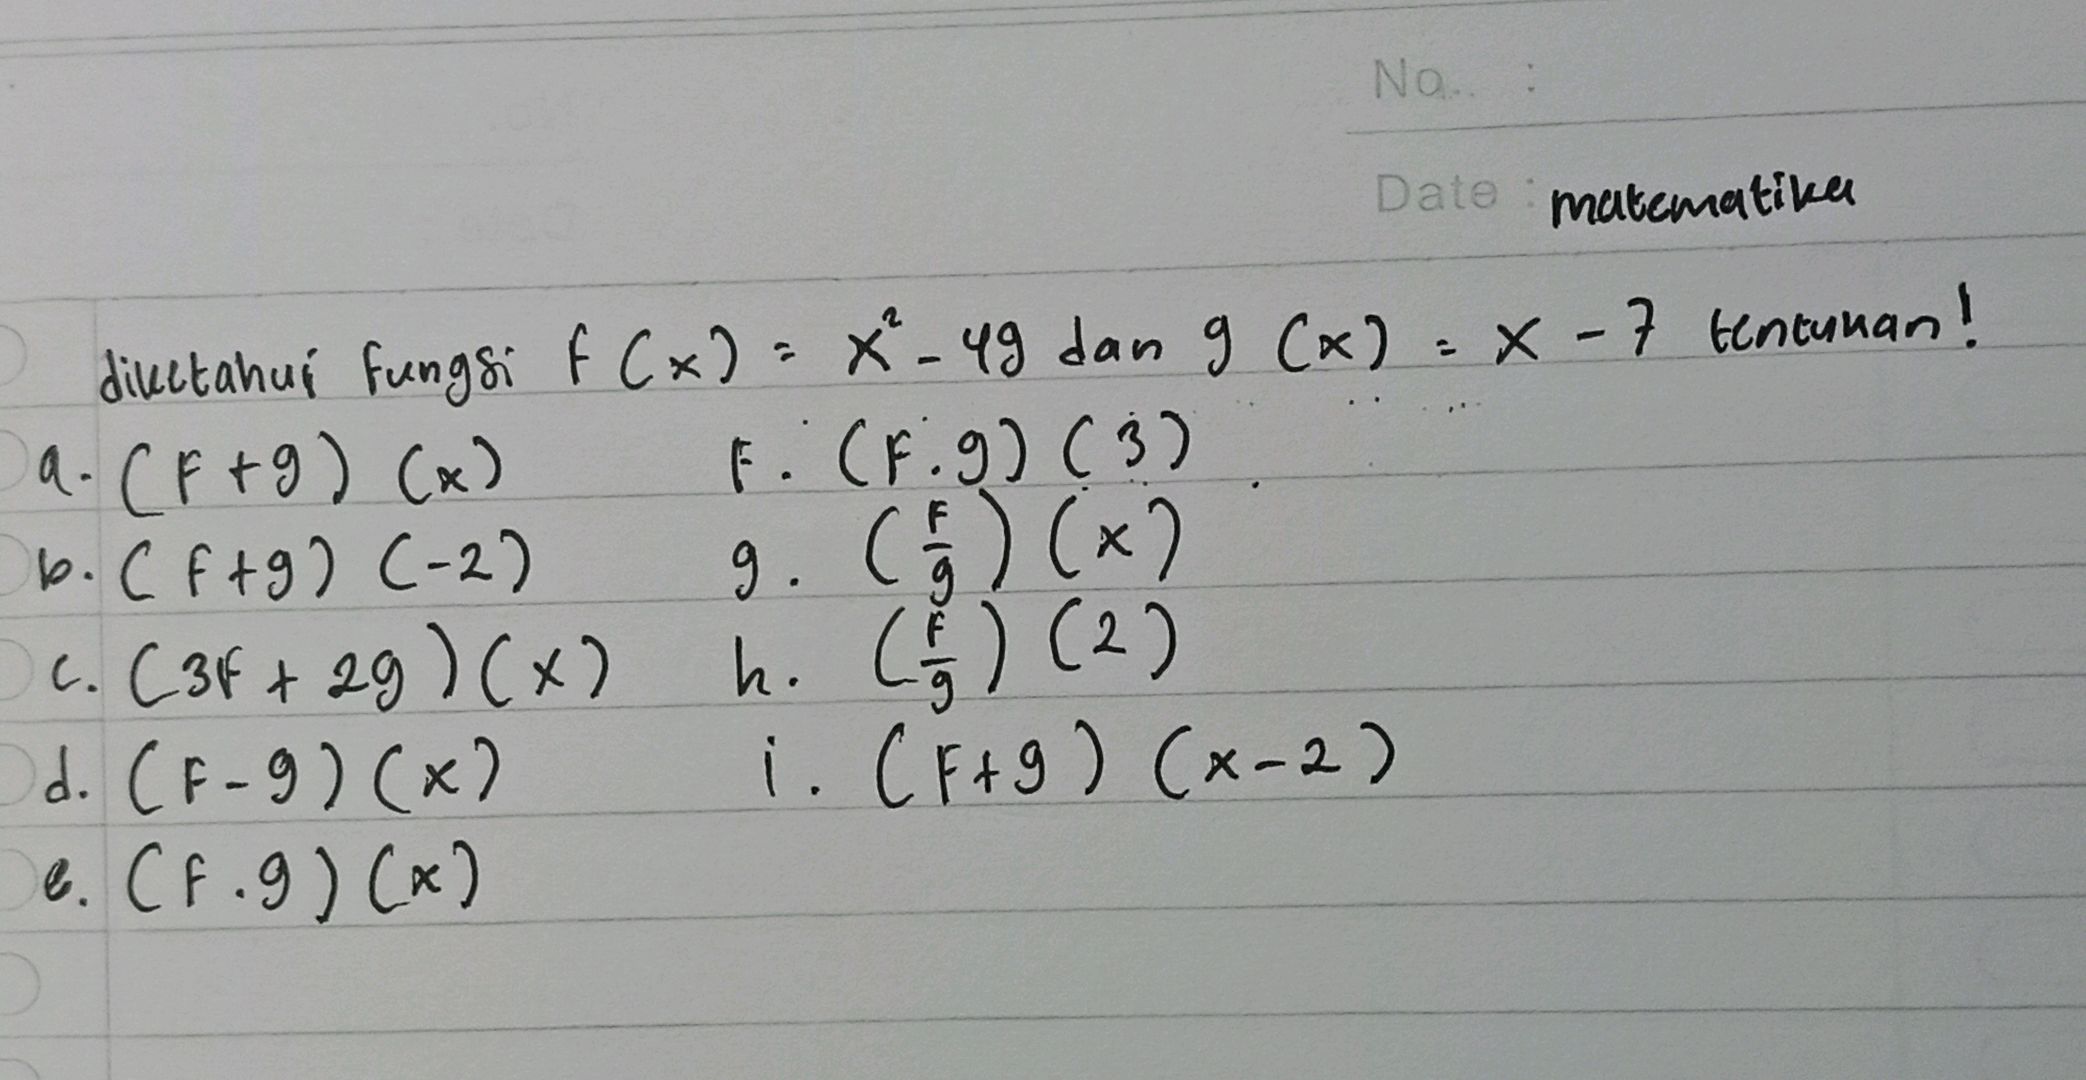 No.. :
Date : matematika
diketahui fungsi f (x) = x² - 49 dan g (x) = x - 7 tentukan!
a. (F + g) (x) F. (F.g) (3)
b. (f + g) (-2) g. (F/g) (x)
c. (3F + 2g) (x) h. (F/g) (2)
d. (F - g) (x) i. (F + g) (x - 2)
e. (F . g) (x)